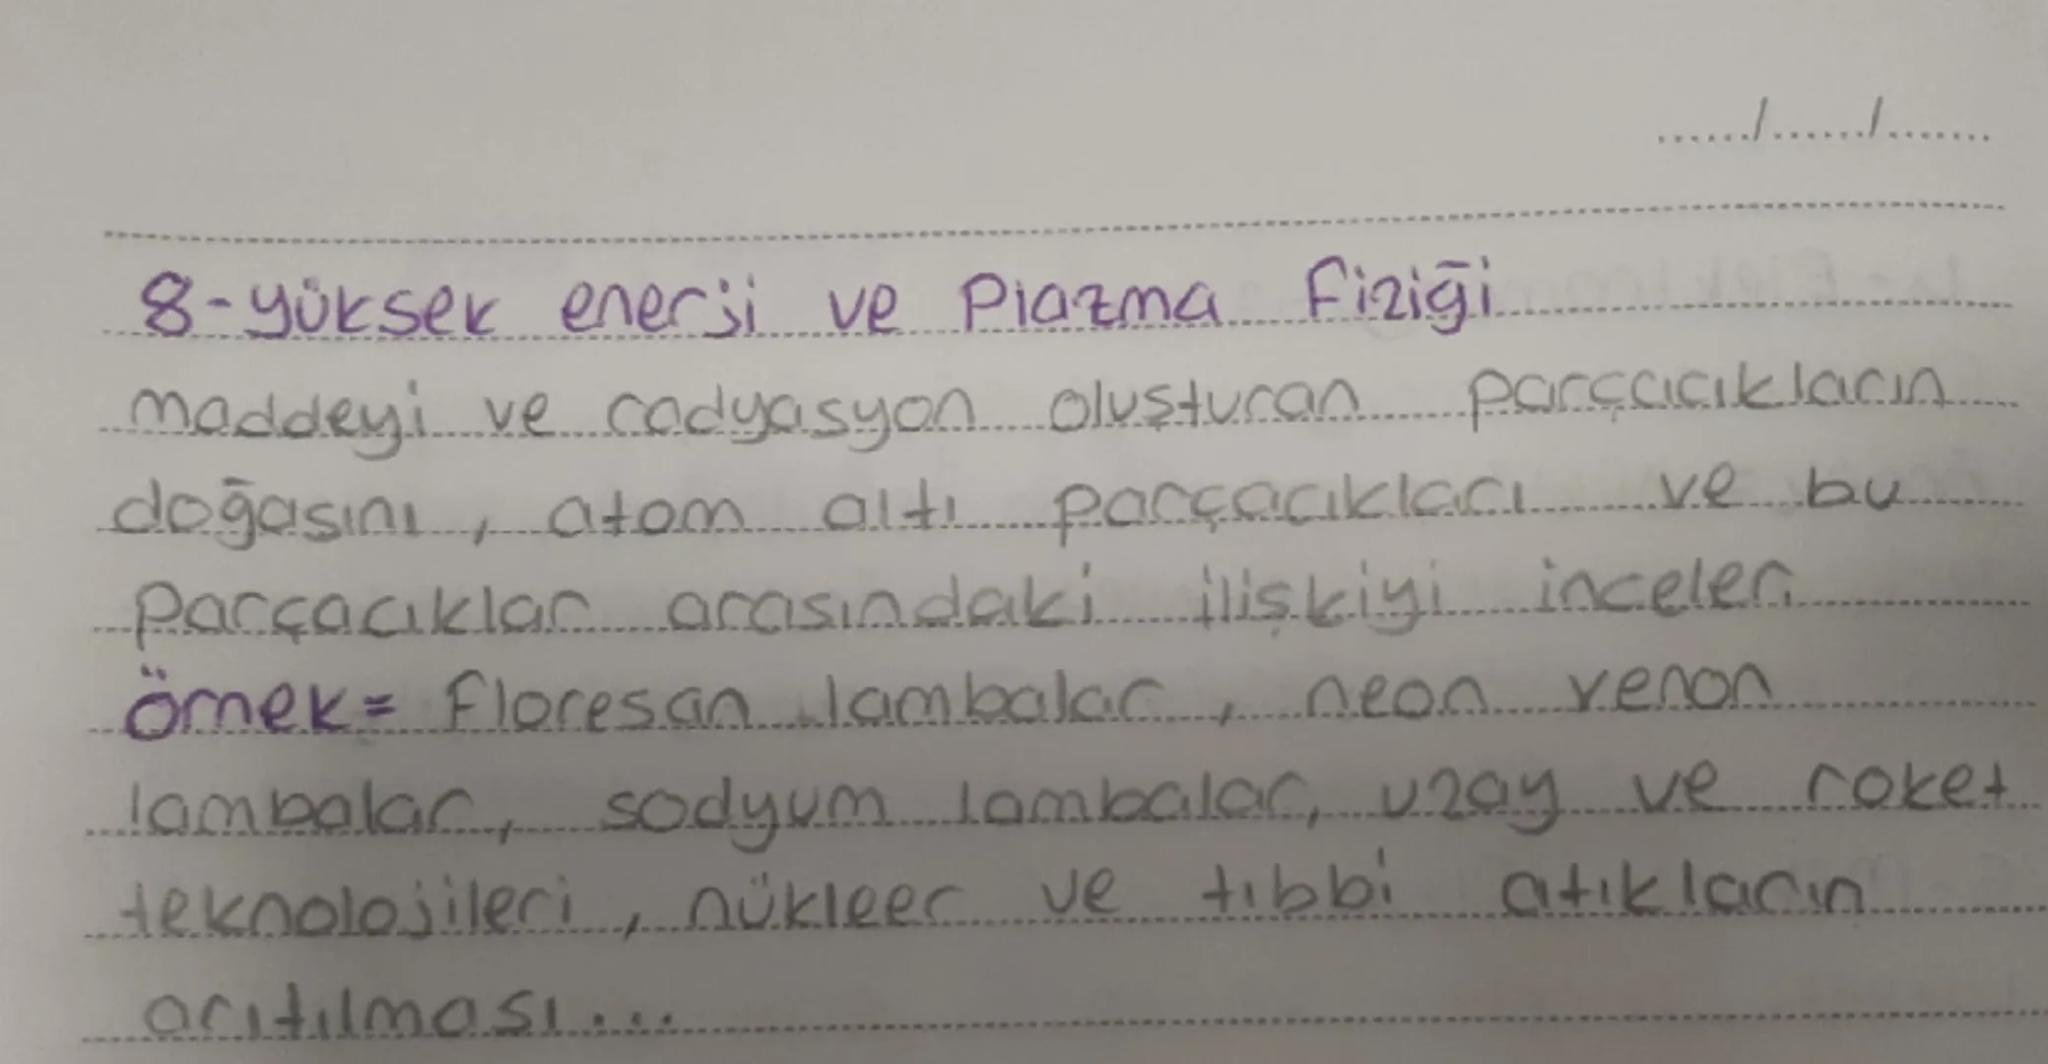 ...../...../.....
8-yüksek enerji ve Plazma Fiziği
maddeyi ve radyasyon oluşturan parçacıkların
doğasını, atom altı parçacıkları ve bu
Parçacıklar arasındaki ilişkiyi inceler.
örnek= Floresan lambalar, neon xenon
lambalar, sodyum lambalar, uzay ve roket
teknolojileri, nükleer ve tıbbi atıkların
arıtılması...